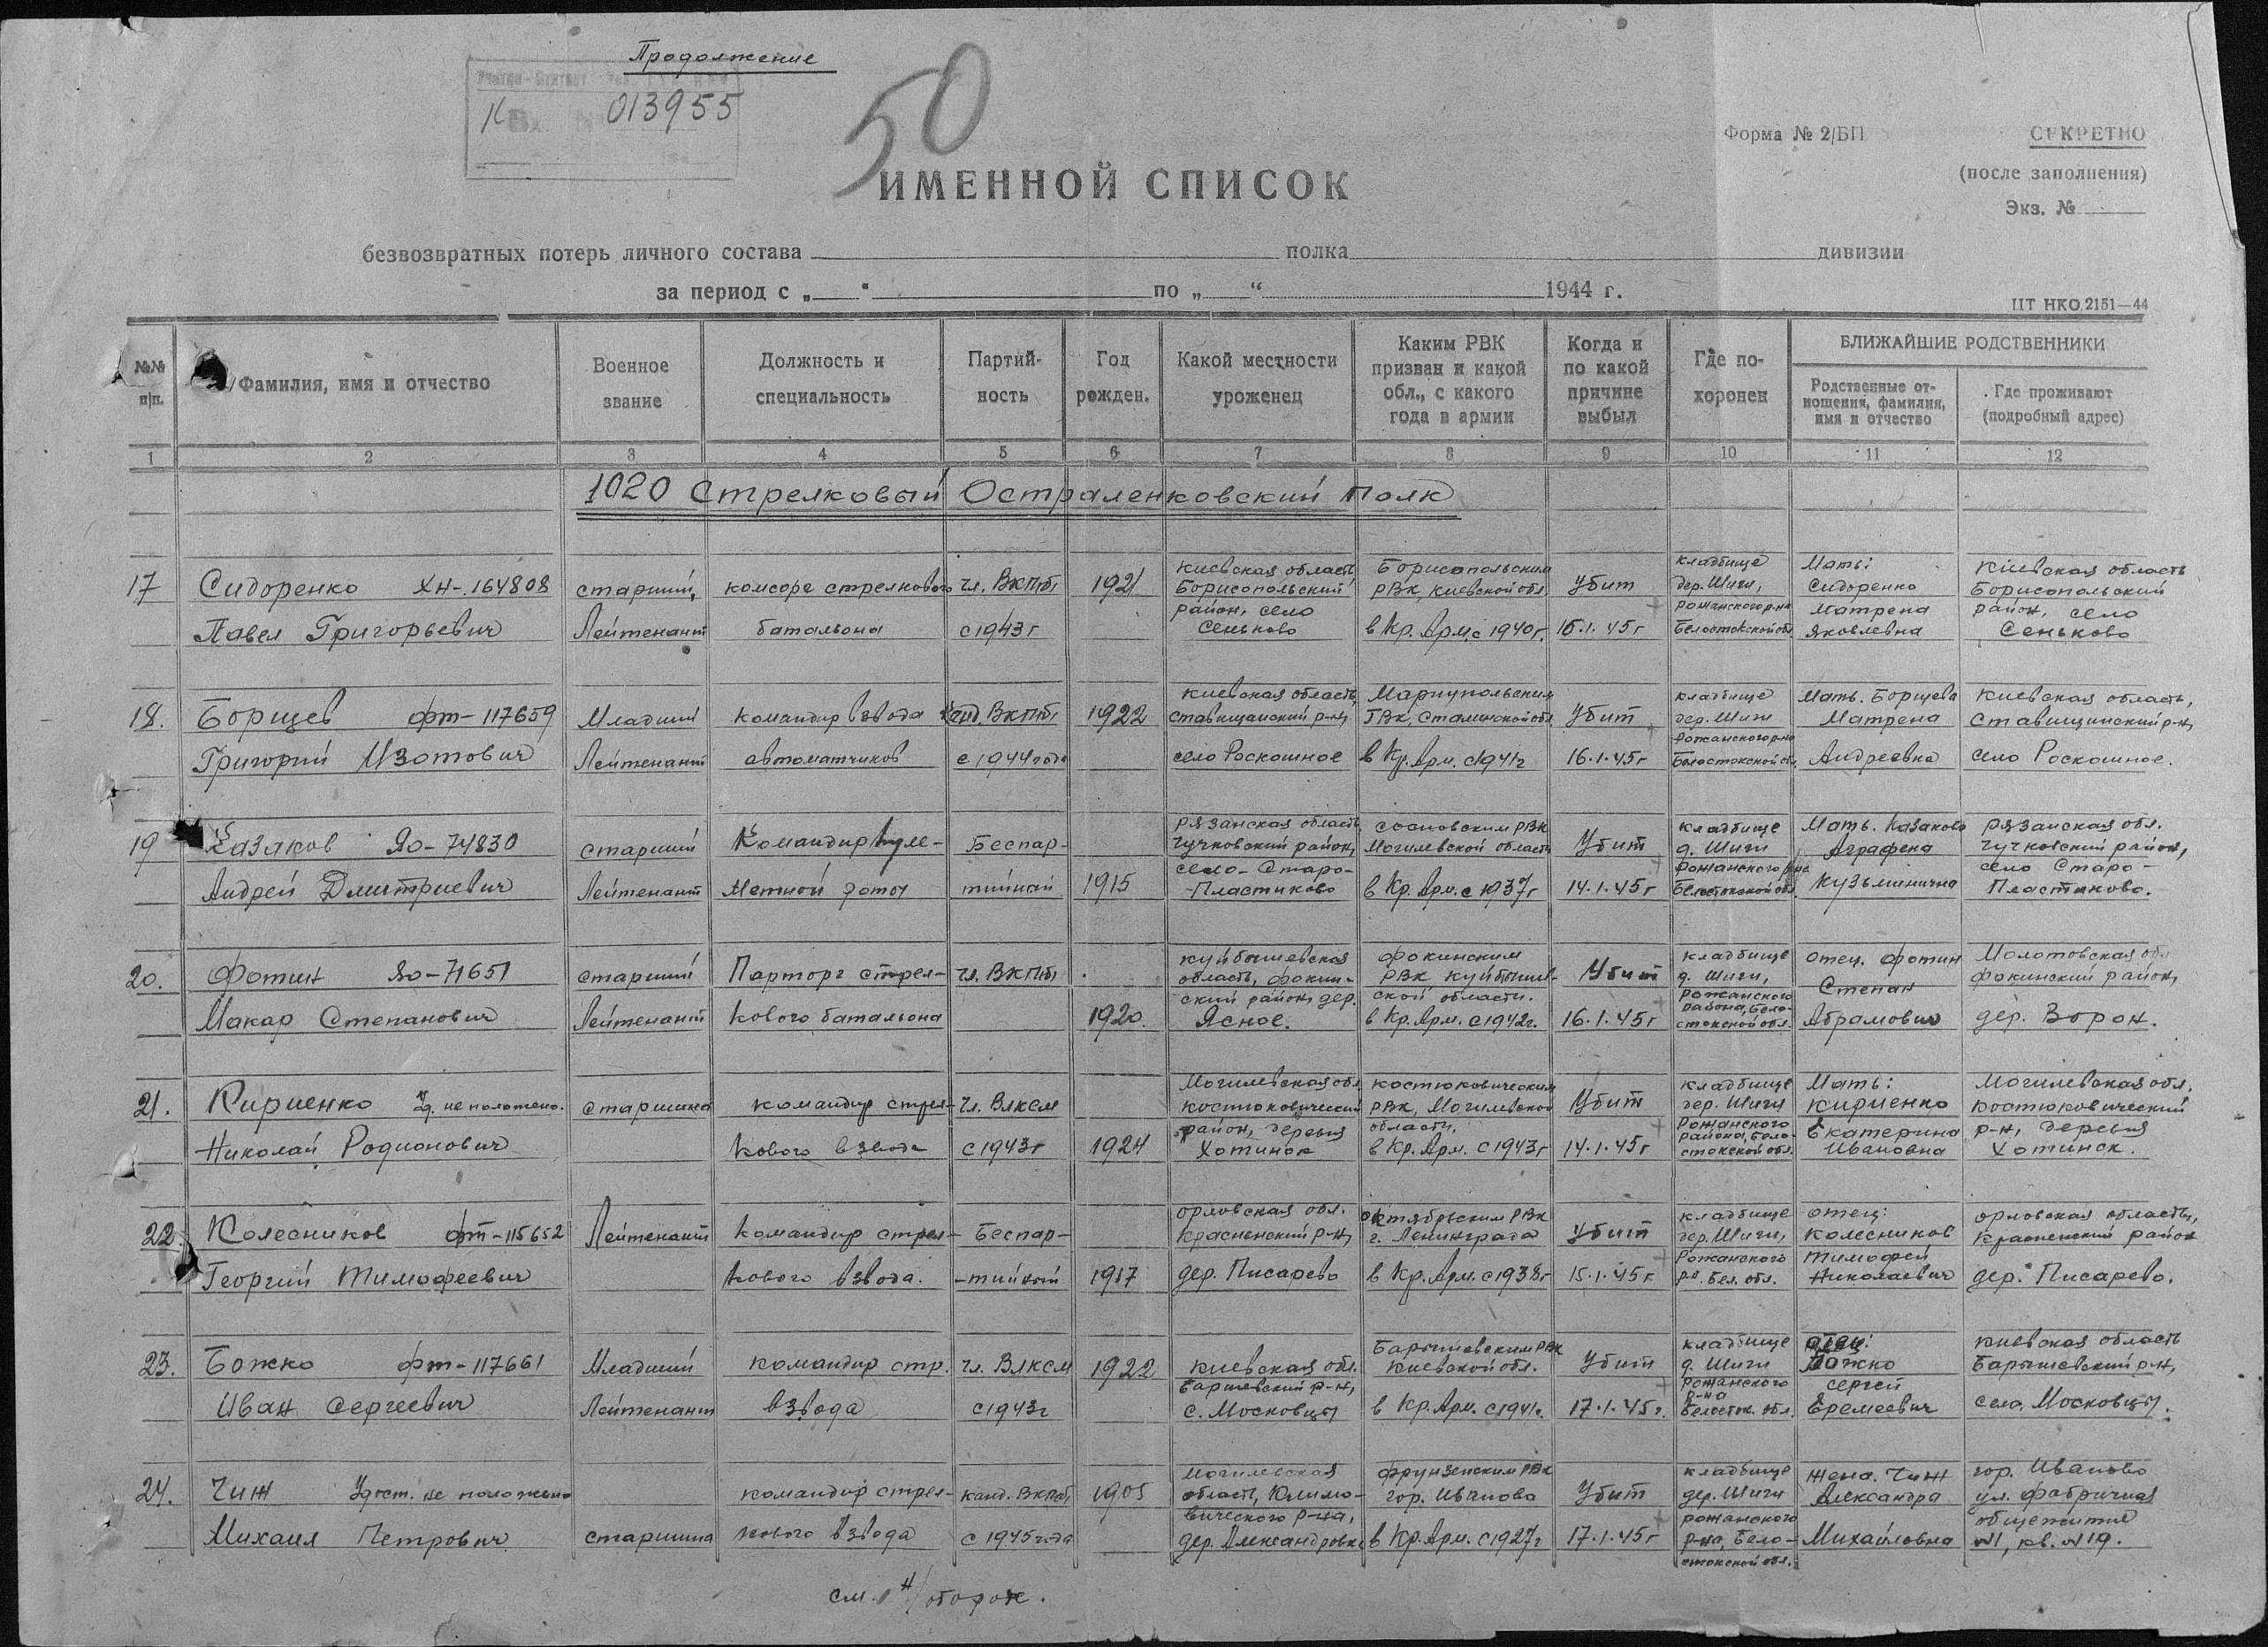 Продолжение
К Вх. № 013955
50
Форма № 2/БП
СЕКРЕТНО
(после заполнения)
Экз. №
ИМЕННОЙ СПИСОК
безвозвратных потерь личного состава полка дивизии
за период с „ “ по „ “ 1944 г.
ЦТ НКО 2151—44
№№ п/п.
Фамилия, имя и отчество
Военное звание
Должность и специальность
Партий-ность
Год рожден.
Какой местности уроженец
Каким РВК призван и какой обл., с какого года в армии
Когда и по какой причине выбыл
Где по-хоронен
БЛИЖАЙШИЕ РОДСТВЕННИКИ
Родственные от-ношения, фамилия, имя и отчество
Где проживают (подробный адрес)
1 2 3 4 5 6 7 8 9 10 11 12
1020 Стрелковый Остраленковский полк
17 Сидоренко ХН-164808
Павел Григорьевич
старший
Лейтенант
комсорг стрелкового
батальона
чл. ВКП(б)
с 1943 г
1921
Киевская область
Борисопольский
район, село
Сеньково
Борисопольским
РВК, Киевской обл.
в Кр. Арм. с 1940 г.
Убит
16.1.45 г
кладбище
дер. Шиги,
Рожанского р-на
Белостокской обл.
Мать:
Сидоренко
Матрена
Яковлевна
Киевская область
Борисопольский
район, село
Сеньково
18. Борщев фт-117659
Григорий Изотович
Младший
Лейтенант
Командир взвода
автоматчиков
канд. ВКП(б)
с 1944 года
1922
Киевская область,
Ставищанский р-н,
село Роскошное
Мариупольским
ГВК, Сталинской обл.
в Кр. Арм. с 1941 г
Убит
16.1.45 г
кладбище
дер. Шиги
Рожанского р-на
Белостокской обл.
Мать. Борщева
Матрена
Андреевна
Киевская область,
Ставищинский р-н,
село Роскошное.
19 Казаков Яо-74830
Андрей Дмитриевич
старший
Лейтенант
Командир пуле-
метной роты
Беспар-
тийный
1915
Рязанская область,
Чучковский район,
село-Старо-
-Пластиково
сосновским РВК
Могилевской области
в Кр. Арм. с 1937 г
Убит
14.1.45 г
кладбище
д. Шиги
Рожанского р-на
Белостокской обл.
Мать. Казакова
Аграфена
Кузьминична
Рязанская обл.
Чучковский район,
село Старо-
Пластиково.
20. Фотин Яо-71651
Макар Степанович
старший
Лейтенант
Парторг стрел-
кового батальона
чл. ВКП(б)
1920.
Куйбышевская
область, Фокин-
ский район, дер.
Ясное.
Фокинским
РВК Куйбышев-
ской области.
в Кр. Арм. с 1942 г.
Убит
16.1.45 г
кладбище
д. Шиги,
Рожанского
района, Бело-
стокской обл.
отец. Фотин
Степан
Абрамович
Молотовская обл
Фокинский район,
дер. Ворон.
21. Кириенко Уд. не положено.
Николай Родионович
старшина
командир стрел-
кового взвода
чл. ВЛКСМ
с 1943 г
1924
Могилевская обл.
Костюковический
район, деревня
Хотинск
Костюковическим
РВК, Могилевской
области.
в Кр. Арм. с 1943 г
Убит
14.1.45 г
кладбище
дер. Шиги
Рожанского
района, Бело-
стокской обл.
Мать:
Кириенко
Екатерина
Ивановна
Могилевская обл.
Костюковический
р-н, деревня
Хотинск.
22. Колесников фт-115652
Георгий Тимофеевич
Лейтенант
Командир стрел-
кового взвода.
Беспар-
-тийный
1917
Орловская обл.
Красненский р-н,
дер. Писарево
Октябрьским РВК
г. Ленинграда
в Кр. Арм. с 1938 г
Убит
15.1.45 г
кладбище
дер. Шиги,
Рожанского
р-н. Бел. обл.
отец:
Колесников
Тимофей
Николаевич
Орловская область,
Красненский район
дер. Писарево.
23. Божко фт-117661
Иван Сергеевич
Младший
Лейтенант
командир стр.
взвода
чл. ВЛКСМ
с 1943 г
1922
Киевская обл.
Баришевский р-н,
с. Московцы
Барышевским РВК
Киевской обл.
в Кр. Арм. с 1941 г.
Убит
17.1.45 г.
кладбище
д. Шиги
Рожанского
р-на
Белосток. обл.
отец:
Божко
Сергей
Еремеевич
Киевская область
Барышевский р-н,
село Московцы.
24. Чиж Удост. не положено
Михаил Петрович
старшина
командир стрел-
кового взвода
канд. ВКП(б)
с 1945 года
1905
Могилевская
область, Климо-
вического р-на,
дер. Александровка
Фрунзенским РВК
гор. Иванова
в Кр. Арм. с 1927 г
Убит
17.1.45 г
кладбище
дер. Шиги
Рожанского
р-на, Бело-
стокской обл.
Жена. Чиж
Александра
Михайловна
гор. Иваново
ул. Фабричная
общежитие
№1, кв. №19.
см. н/обороте.